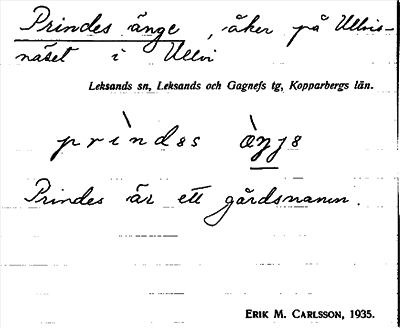 Prindes änge, åker på Ullvis-
näset i Ullvi
Leksands sn, Leksands och Gagnefs tg, Kopparbergs län.
prìndəs æ̀ŋjə
Prindes är ett gårdsnamn.
ERIK M. CARLSSON, 1935.